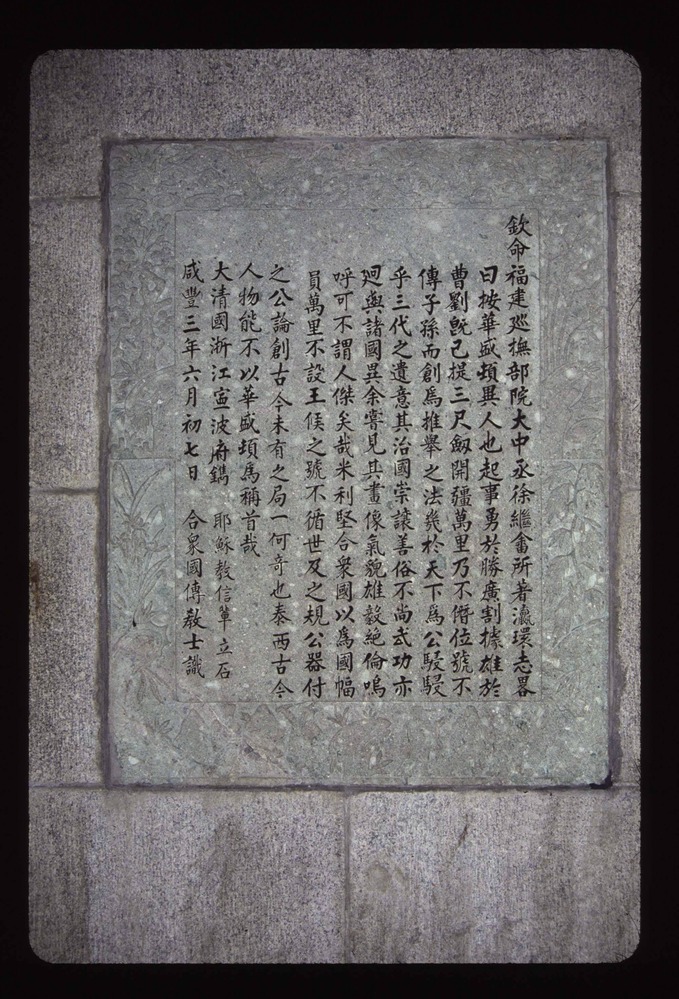 欽命福建廵撫部院大中丞徐繼畬所著瀛環志畧
曰按華盛頓異人也起事勇於勝廣割據雄於
曹劉既已提三尺劔開疆萬里乃不僭位號不
傳子孫而創為推舉之法幾於天下為公駸駸
乎三代之遺意其治國崇讓善俗不尚武功亦
迥與諸國異余嘗見其畫像氣貌雄毅絕倫嗚
呼可不謂人傑矣哉米利堅合衆國以為國幅
員萬里不設王侯之號不循世及之規公器付
之公論創古今未有之局一何奇也泰西古今
人物能不以華盛頓為稱首哉
大清國浙江寧波府鐫 耶穌教信輩立石
咸豐三年六月初七日 合衆國傳教士識